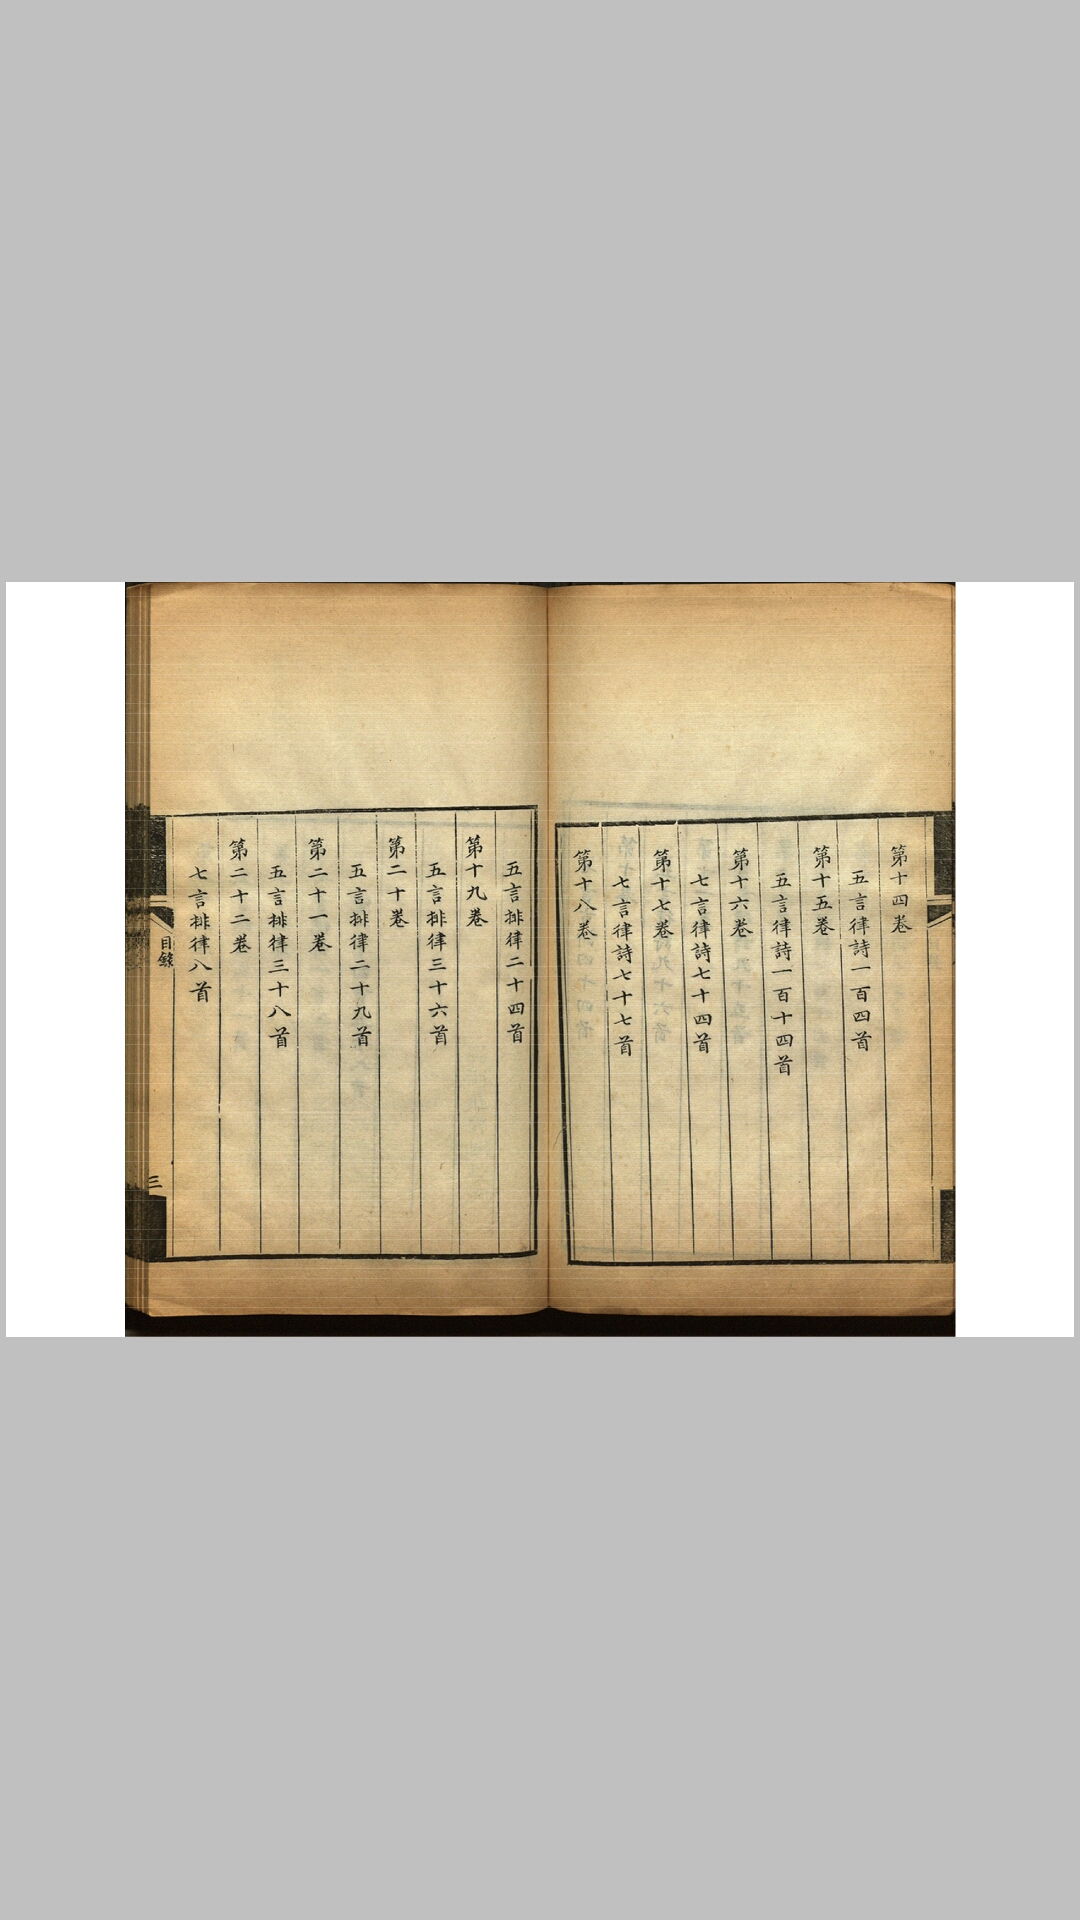 第十四卷
五言律詩一百四首
第十五卷
五言律詩一百十四首
第十六卷
七言律詩七十四首
第十七卷
七言律詩七十七首
第十八卷
五言排律二十四首
第十九卷
五言排律三十六首
第二十卷
五言排律二十九首
第二十一卷
五言排律三十八首
第二十二卷
七言排律八首
目錄
三